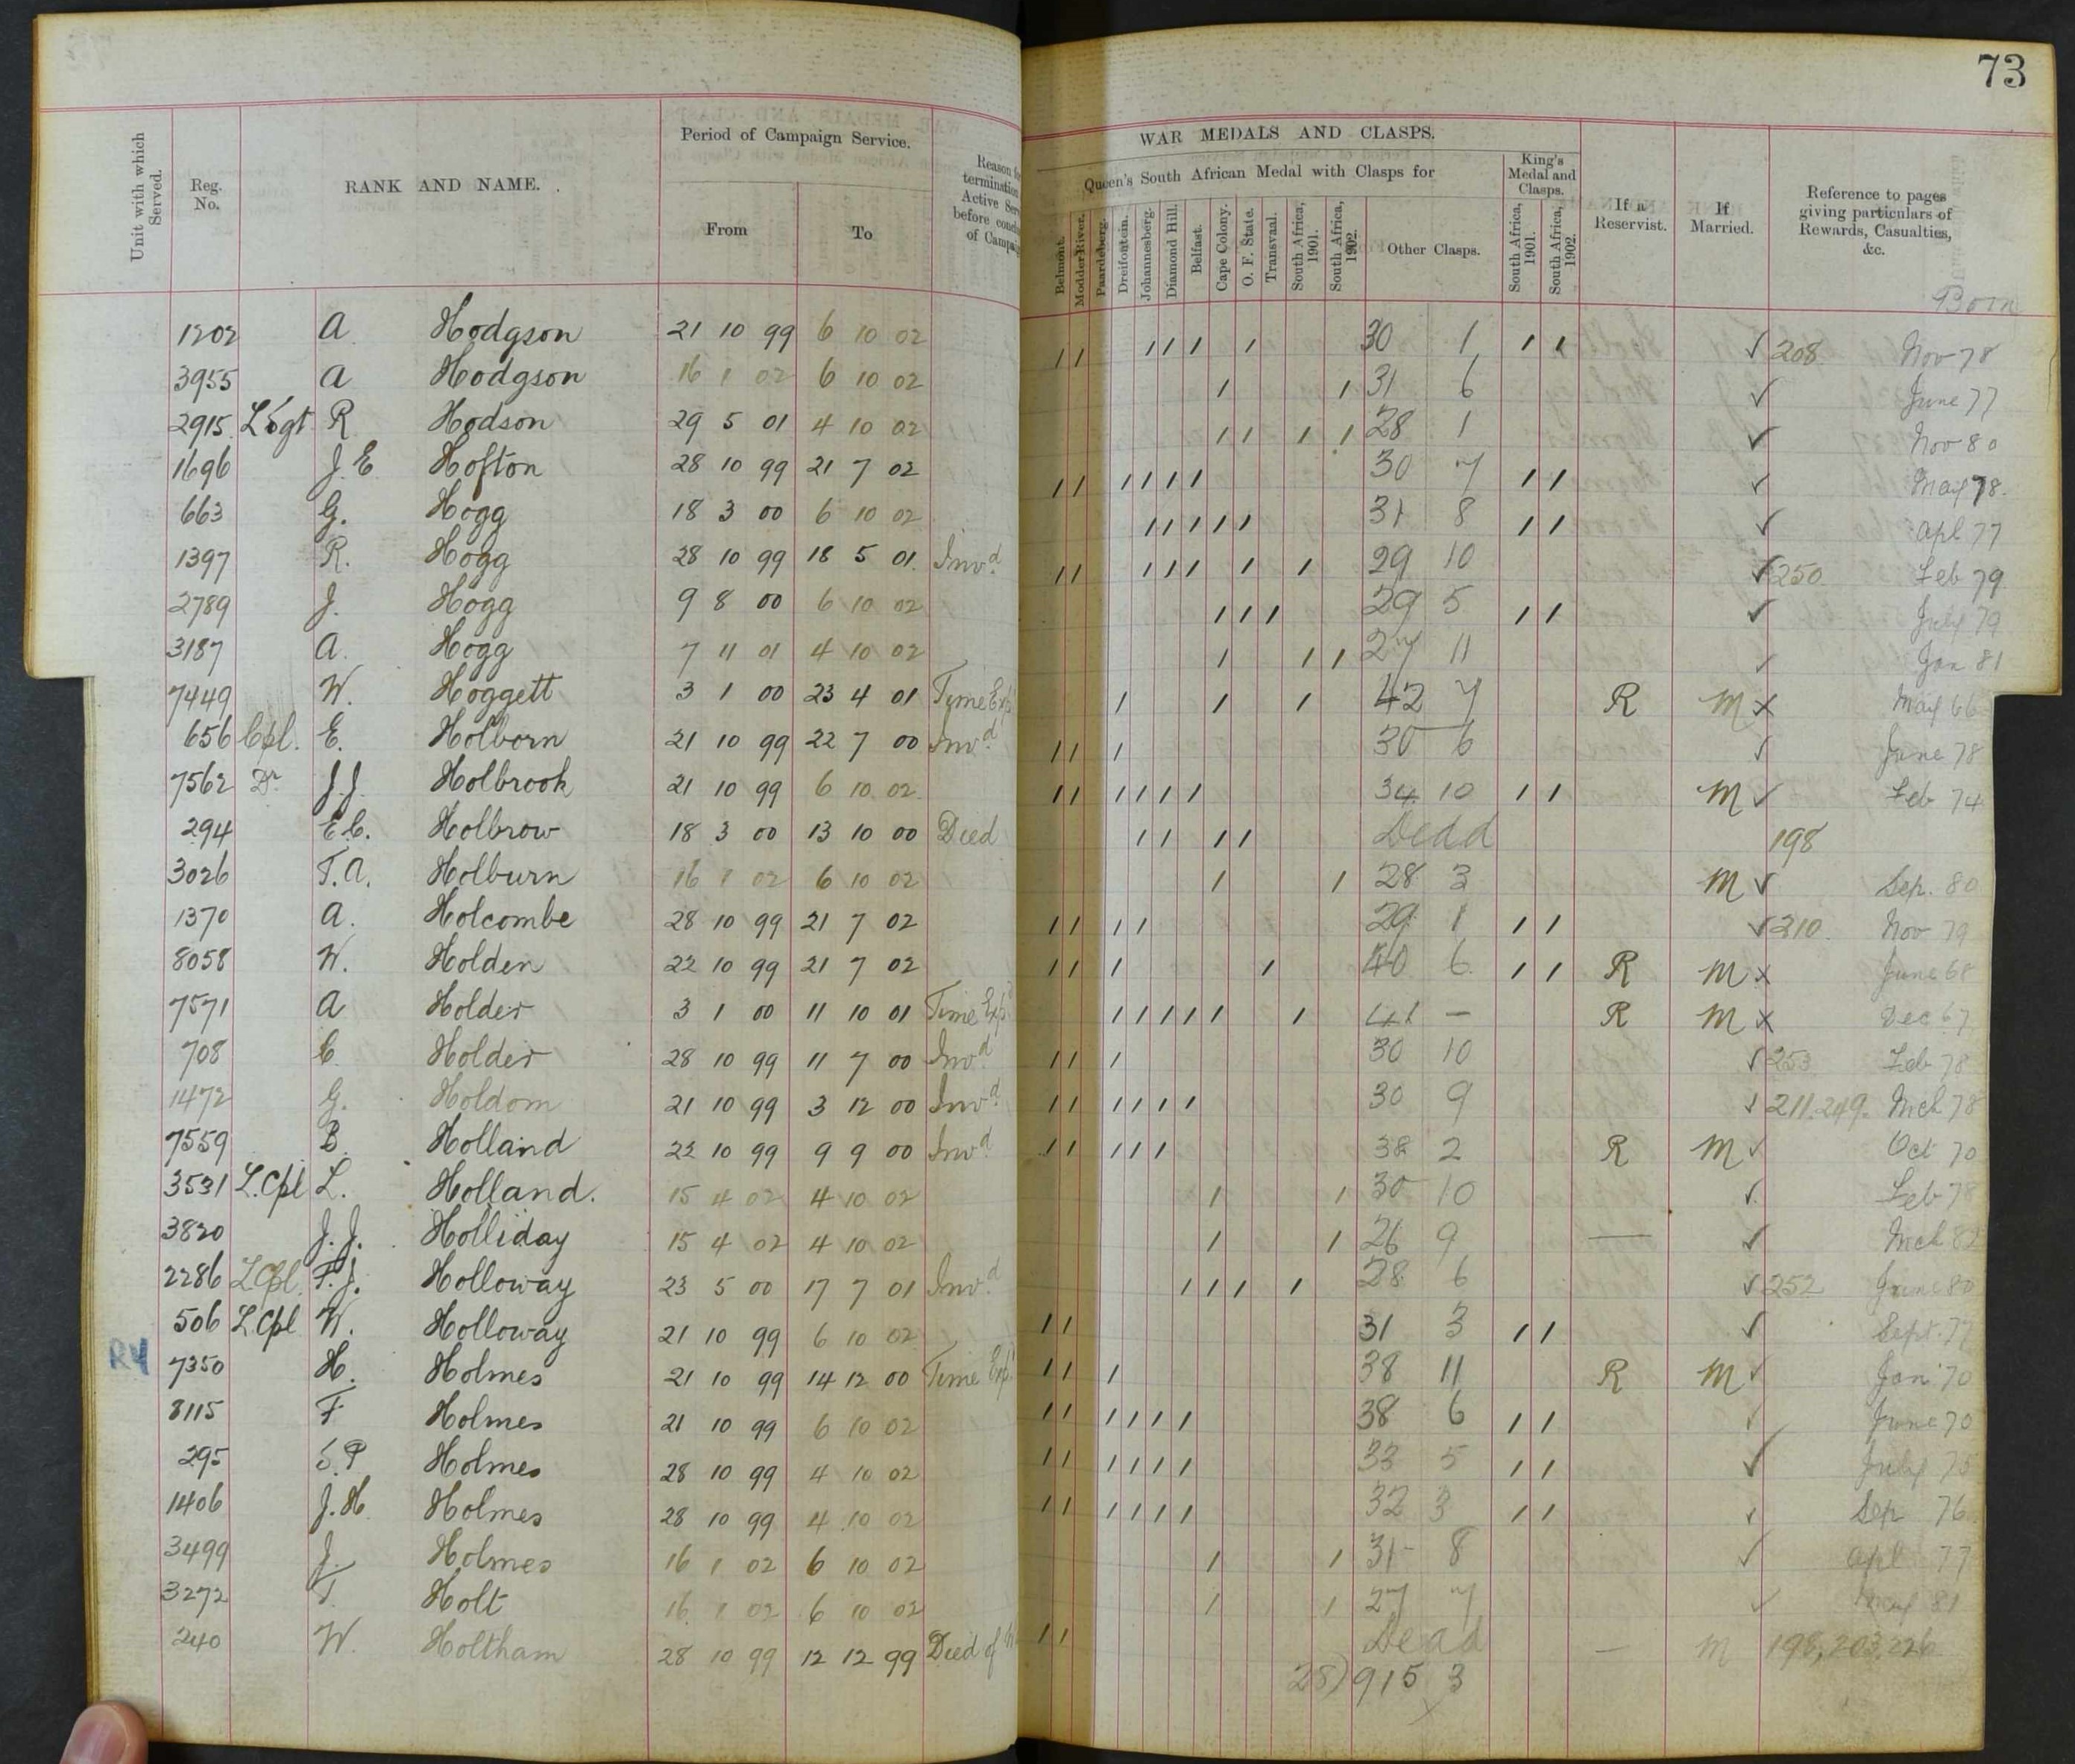 73
Period of Campaign Service.
WAR MEDALS AND CLASPS.
Unit with which Served.
Reg. No.
RANK AND NAME.
From
To
Reason
termination
Active
before
of
Queen's South African Medal with Clasps for
Belmont.
Modder River.
Paardeberg.
Dreifontein.
Johannesberg.
Diamond Hill.
Belfast.
Cape Colony.
O. F. State.
Transvaal.
South Africa, 1901.
South Africa, 1902.
Other Clasps.
King's Medal and Clasps.
South Africa, 1901.
South Africa, 1902.
If a Reservist.
If Married.
Reference to pages giving particulars of Rewards, Casualties, &c.
Born
1202 A. Hodgson 21 10 99 6 10 02 / / / / / / 30 1 / / ✓ 208 Nov 78
3955 A Hodgson 16 1 02 6 10 02 / / 31 6 ✓ June 77
2915 L Sgt R Hodson 29 5 01 4 10 02 / / / / 28 1 ✓ Nov 80
1696 J.E Hofton 28 10 99 21 7 02 / / / / / / 30 7 / / ✓ May 78.
663 G. Hogg 18 3 00 6 10 02 / / / / / 31 8 / / ✓ Apl 77
1397 R. Hogg 28 10 99 18 5 01. Invd / / / / / / / 29 10 ✓ 250 Feb 79
2789 J. Hogg 9 8 00 6 10 02 / / / 29 5 / / ✓ July 79
3187 A. Hogg 7 11 01 4 10 02 / / / 27 11 ✓ Jan 81
7449 W. Hoggett 3 1 00 23 4 01 Time Exp / / / 42 7 R M x May 66
656 Cpl. E. Holborn 21 10 99 22 7 00 Invd / / / 30 6 ✓ June 78
7562 Dr J.J. Holbrook 21 10 99 6 10 02 / / / / / / 34 10 / / M ✓ Feb 74
294 E.C. Holbrow 18 3 00 13 10 00 Died / / / / Dead 198
3026 T.A. Holburn 16 1 02 6 10 02 / / 28 3 M ✓ Sep. 80
1370 A. Holcombe 28 10 99 21 7 02 / / / / 29 1 / / ✓ 210 Nov 79
8058 W. Holden 22 10 99 21 7 02 / / / / 40 6 / / R M x June 68
7571 A Holder 3 1 00 11 10 01 Time Exp / / / / / / 41 — R M x Dec 67
708 C. Holder 28 10 99 11 7 00 Invd / / / 30 10 ✓ 253 Feb 78
1472 G. Holdom 21 10 99 3 12 00 Invd / / / / / / 30 9 ✓ 211. 249. Mch 78
7559 B. Holland 22 10 99 9 9 00 Invd / / / / / 38 2 R M ✓ Oct 70
3531 L.Cpl L. Holland. 15 4 02 4 10 02 / / 30 10 ✓ Feb 78
3820 J.J. Holliday 15 4 02 4 10 02 / / 26 9 — ✓ Mch 82
2286 L.Cpl. F.J. Holloway 23 5 00 17 7 01 Invd / / / / 28 6 ✓ 252 June 80
506 L.Cpl W. Holloway 21 10 99 6 10 02 / / 31 3 / / ✓ Sept. 77
7350 H. Holmes 21 10 99 14 12 00 Time Exp / / / 38 11 R M ✓ Jan 70
8115 F Holmes 21 10 99 6 10 02 / / / / / / 38 6 / / ✓ June 70
295 S.P Holmes 28 10 99 4 10 02 / / / / / / 33 5 / / ✓ July 75
1406 J.H. Holmes 28 10 99 4 10 02 / / / / / / 32 3 / / ✓ Sep 76
3499 J. Holmes 16 1 02 6 10 02 / / 31 8 ✓ Apl 77
3272 T. Holt 16 1 02 6 10 02 / / 27 7 ✓ May 81
240 W. Holtham 28 10 99 12 12 99 Died of / / Dead — M 198, 203, 226
28) 915 3